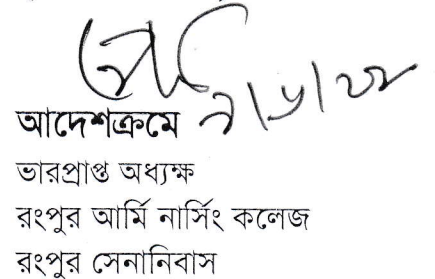 আদেশক্রমে
ভারপ্রাপ্ত অধ্যক্ষ
রংপুর আর্মি নার্সিং কলেজ
রংপুর সেনানিবাস